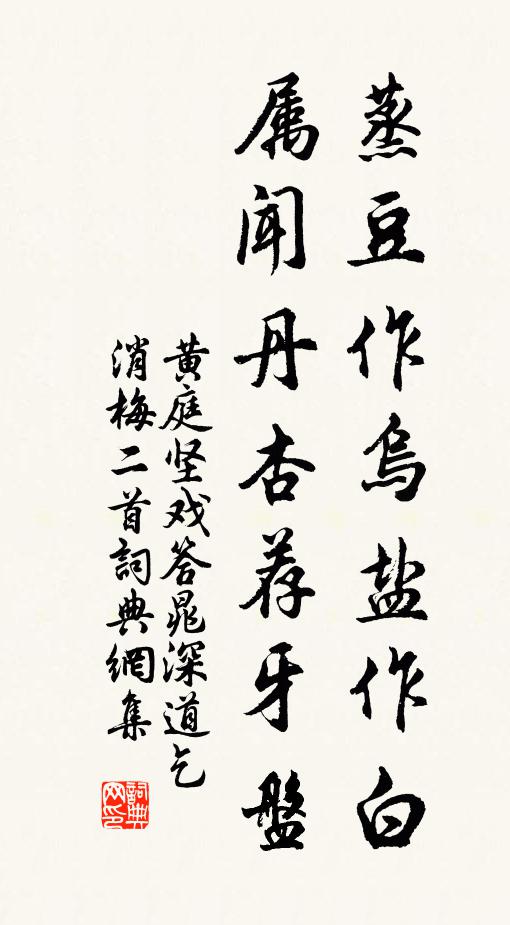 蒸豆作乌盐作白
属闻丹杏荐牙盤
黄庭坚戏答晁深道乞
消梅二首詞典網集
詞典网印